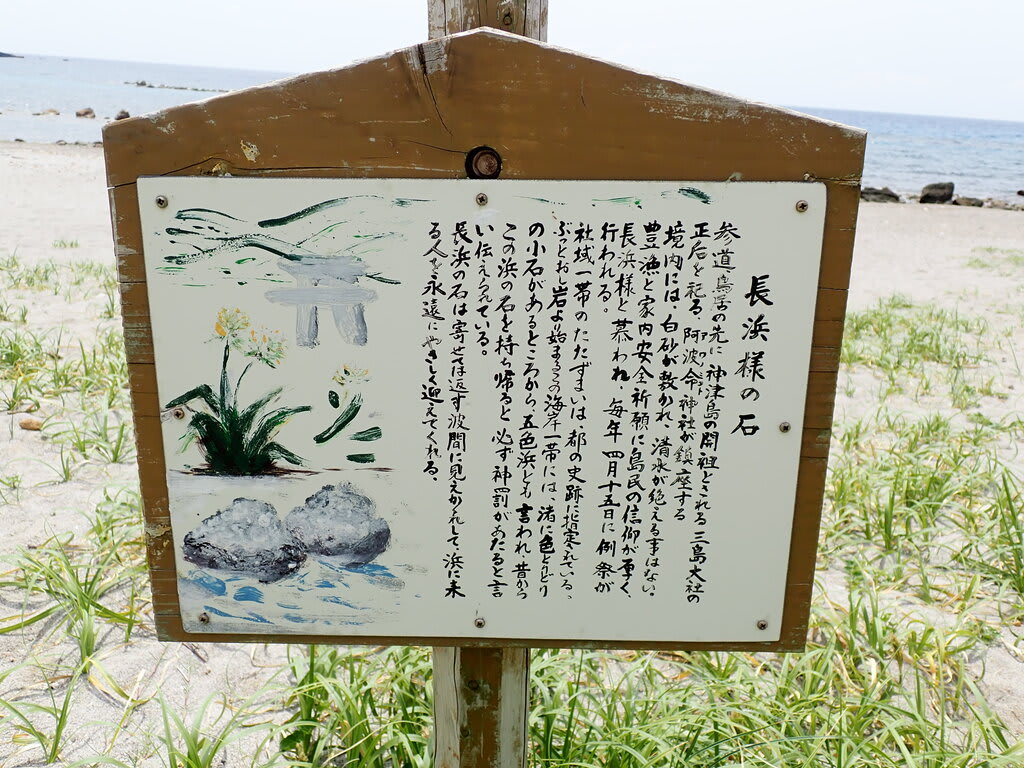 長浜様の石
参道鳥居の先に神津島の開祖とされる三島大社の
正后を祀る、阿波命神社が鎮座する
境内には、白砂が敷かれ、清水が絶える事はない。
豊漁と家内安全祈願に島民の信仰が厚く、
長浜様と慕われ、毎年四月十五日に例祭が
行われる。
社域一帯のたたずまいは、都の史跡に指定されている。
ぶっとおし岩より始まるこの海岸一帯には、渚に色とりどり
の小石があるところから五色浜とも言われ、昔から
この浜の石を持ち帰ると必ず神罰があたると言
い伝えられている。
長浜の石は寄せては返す波間に見えかくれして浜に来
る人を永遠にやさしく迎えてくれる、